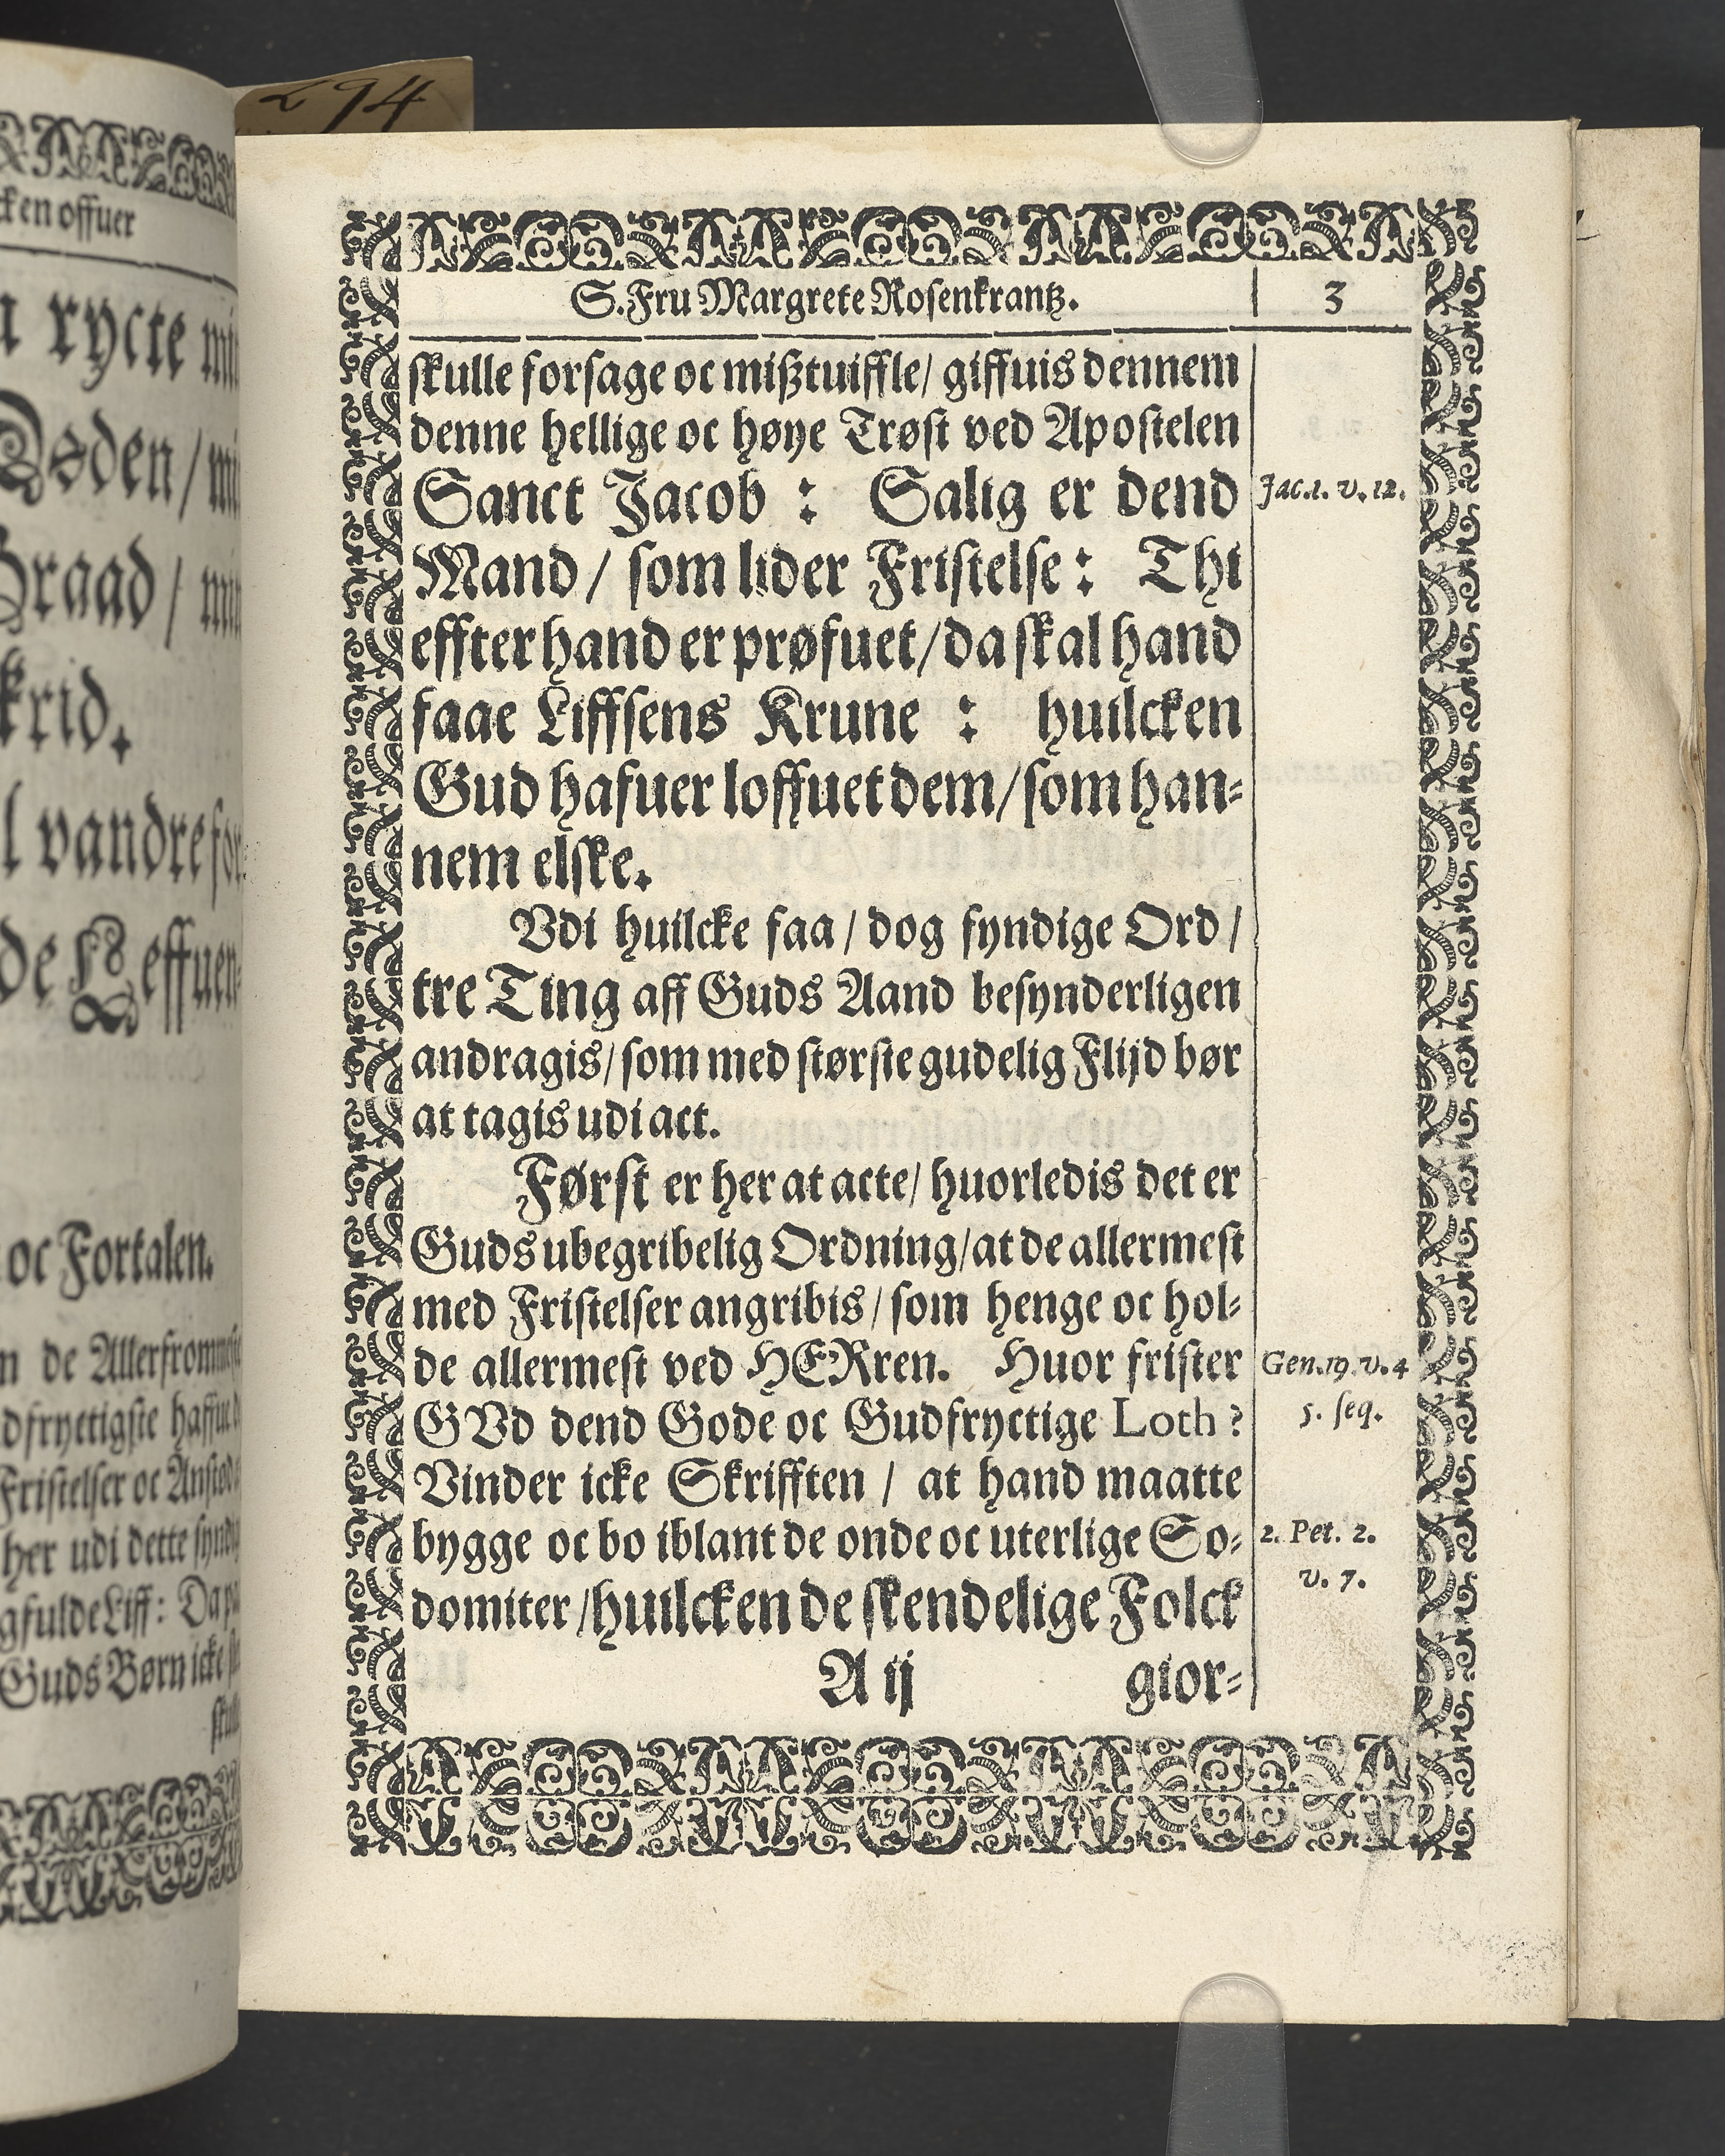 294
cken offuer
rycte
Døden /
Graad /
krid.
vandre for
de Leffuen-
oc Fortalen.
de Allerfrommeste
Fristelser oc Anstød
her udi dette
Liff: Da
Guds Børn icke
S. Fru Margrete Rosenkrantz. 3
skulle forsage oc mißtuiffle/ giffuis dennem
denne hellige oc høye Trøst ved Apostelen
Sanct Jacob : Salig er dend Jac.1. v. 12.
Mand / som lider Fristelse : Thi
effter hand er prøfuet / da skal hand
faae Liffsens Krune : huilcken
Gud hafuer loffuet dem / som han-
nem elske.
Vdi huilcke faa / dog fyndige Ord /
tre Ting aff Guds Aand besynderligen
andragis / som med største gudelig Flijd bør
at tagis udi act.
Først er her at acte / huorledis det er
Guds ubegribelig Ordning / at de allermest
med Fristelser angribis / som henge oc hol-
de allermest ved HERren. Huor frister Gen.19. v. 4
GVd dend Gode oc Gudfryctige Loth ? 5. seq.
Vinder icke Skrifften / at hand maatte
bygge oc bo iblant de onde oc uterlige So- 2. Pet. 2.
v. 7.
domiter / huilcken de skendelige Folck
A ij gior-